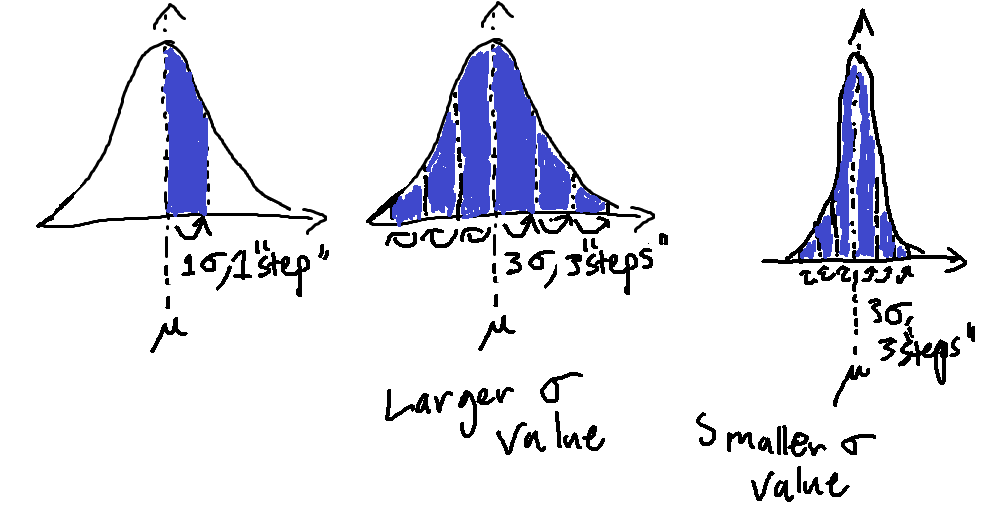 1σ, 1"step"
μ
3σ, 3"steps"
μ
Larger σ
value
3σ,
3"steps"
μ
Smaller σ
value